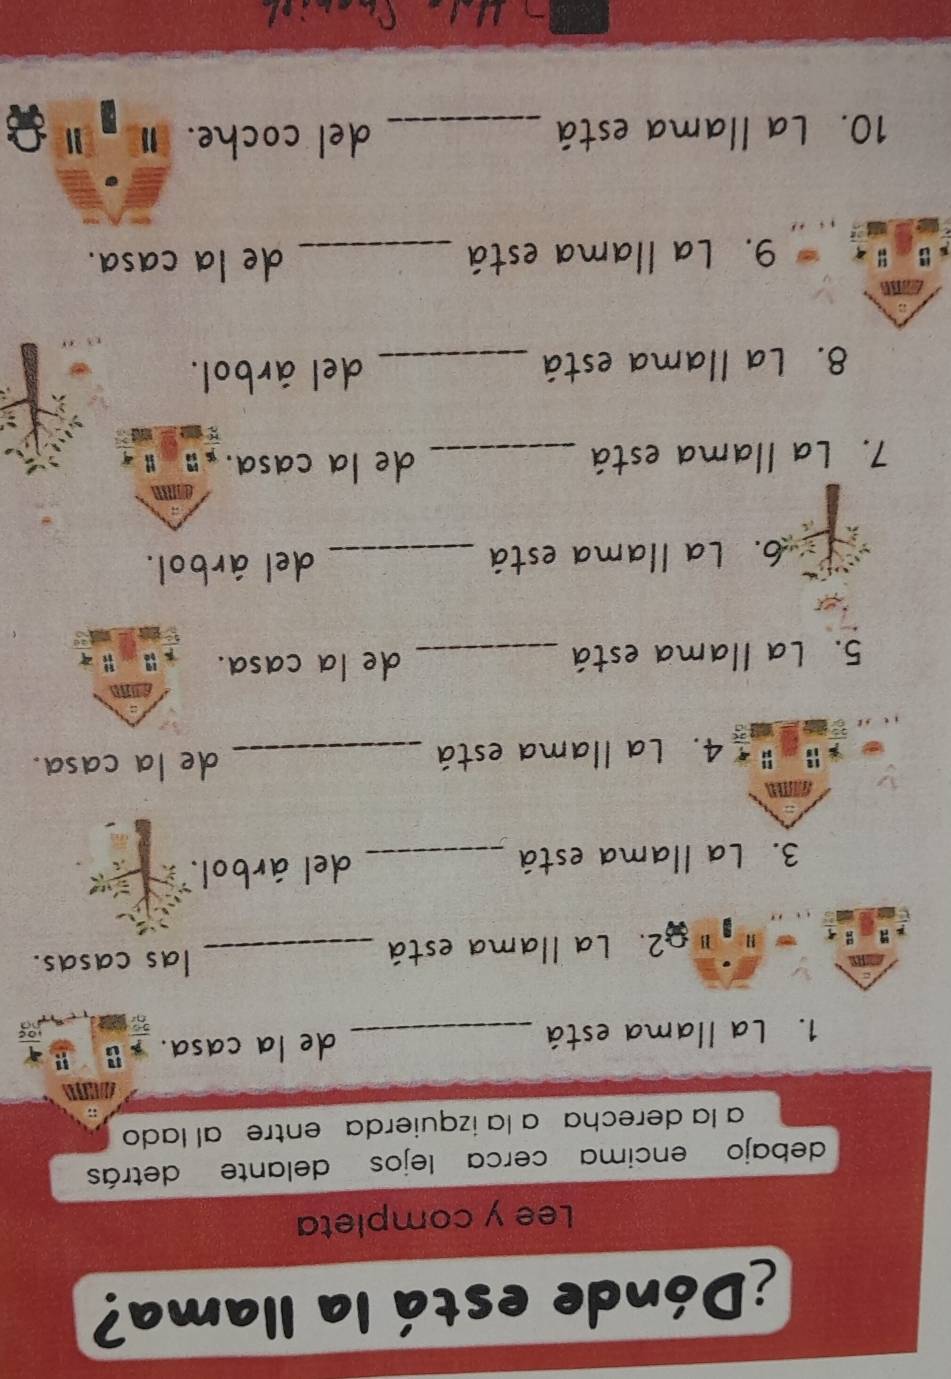 ¿Dónde está la llama?
Lee y completa
debajo encima cerca lejos delante detrás
a la derecha a la izquierda entre al lado
1. La llama está __________ de la casa.
2. La llama está __________ las casas.
3. La llama está __________ del árbol.
4. La llama está __________ de la casa.
5. La llama está __________ de la casa.
6. La llama está __________ del árbol.
7. La llama está __________ de la casa.
8. La llama está __________ del árbol.
9. La llama está __________ de la casa.
10. La llama está __________ del coche.